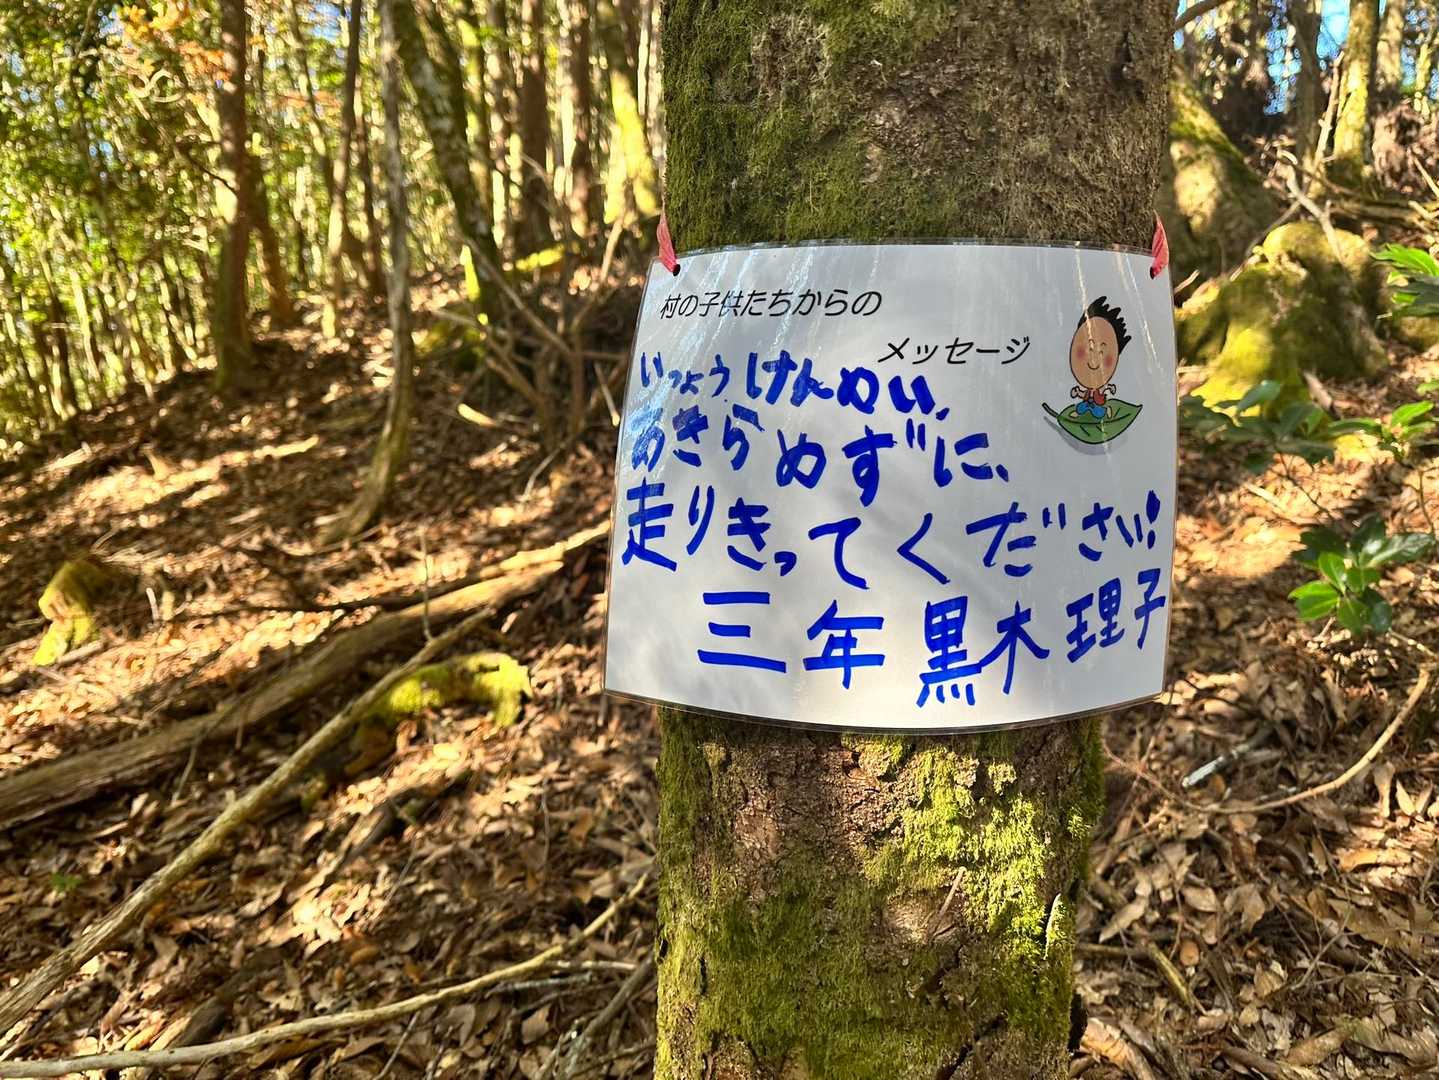 村の子供たちからの
メッセージ
いっしょうけんめい、
あきらめずに、
走りきってください!
三年 黒木理子